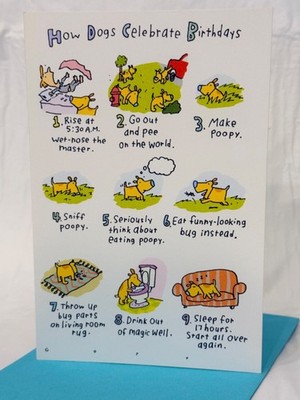 How Dogs Celebrate Birthdays
1. Rise at
5:30 A.M.
wet-nose the
master.
2. Go out
and pee
on the world.
3. Make
poopy.
4. Sniff
poopy.
5. Seriously
think about
eating poopy.
6. Eat funny-looking
bug instead.
7. Throw up
bug parts
on living room
rug.
8. Drink out
of magic well.
9. Sleep for
17 hours.
Start all over
again.